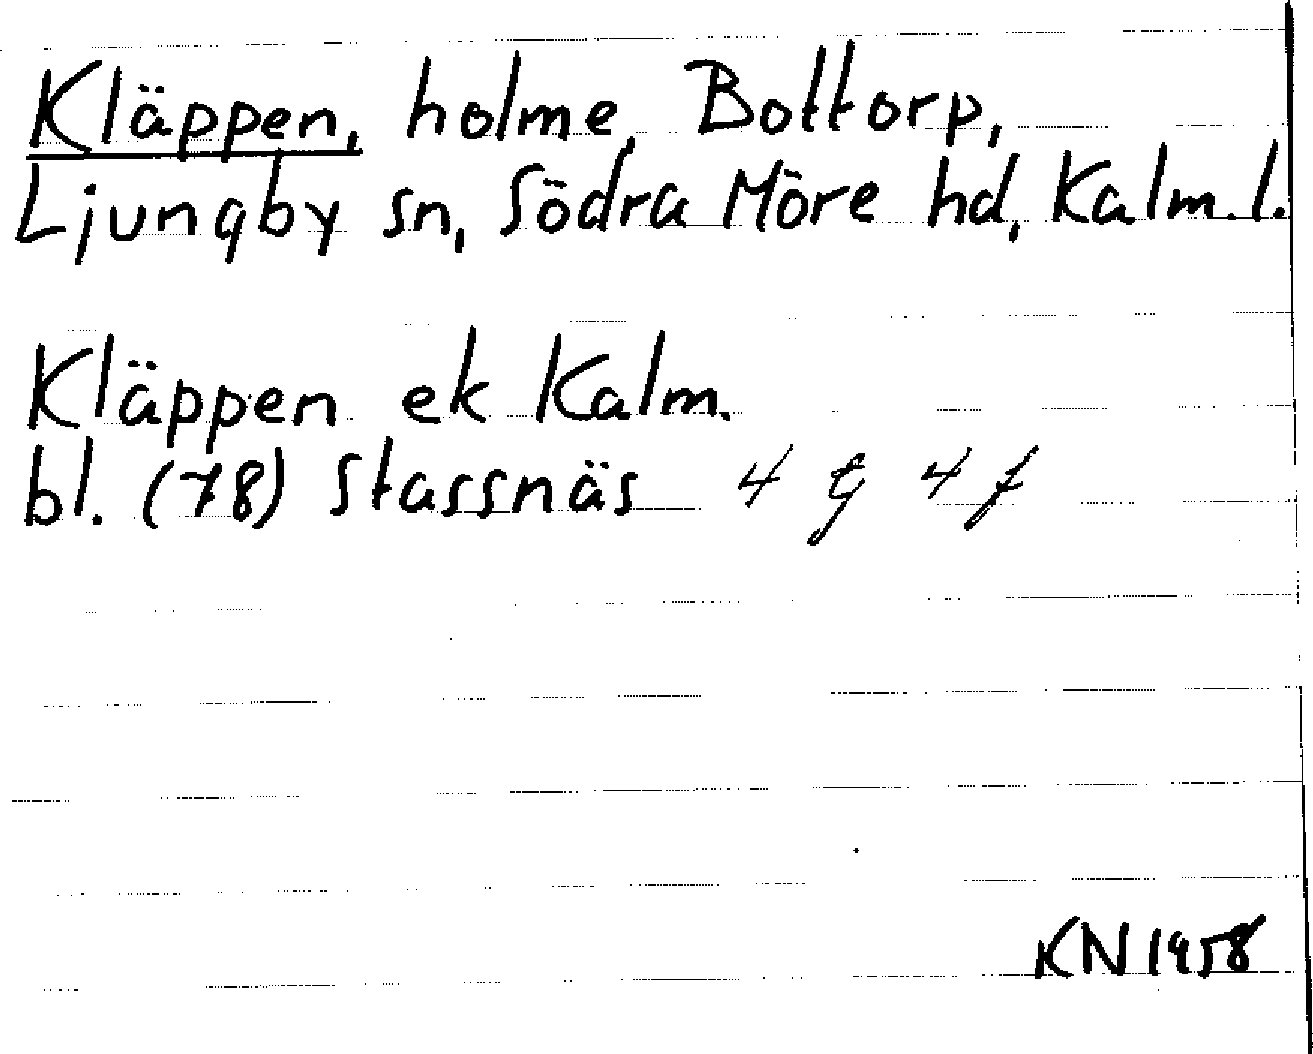 Kläppen, holme, Bottorp,
Ljungby sn, Södra Möre hd, Kalm. l.
Kläppen ek Kalm.
bl. (78) Stassnäs 4 G 4 f
KN 1958